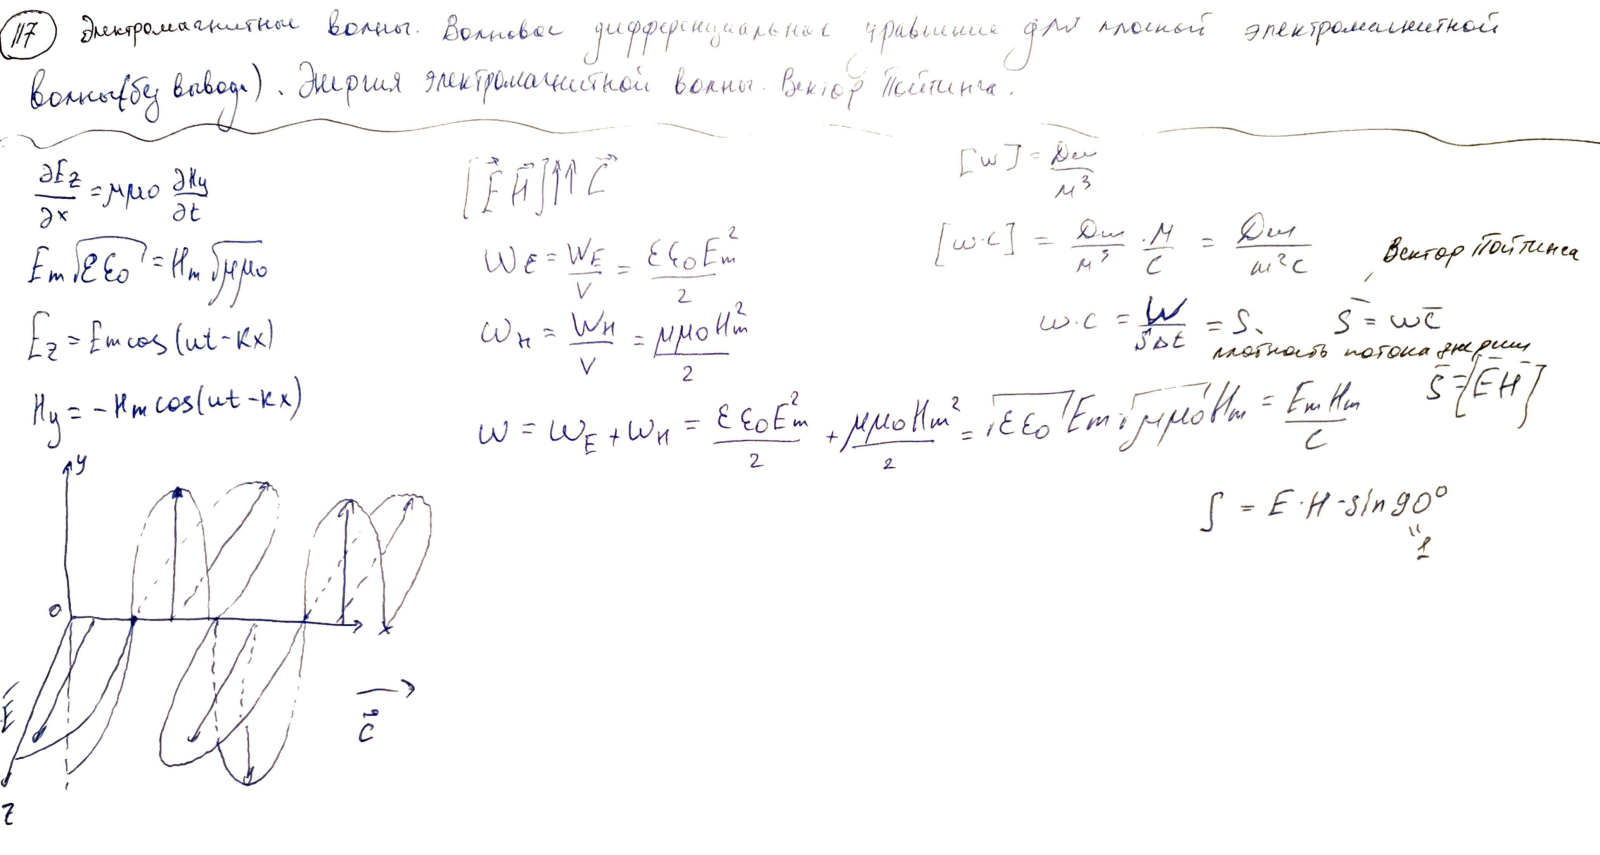 117 Электромагнитные волны. Волновое дифференциальное уравнение для плоской электромагнитной
волны (без вывода). Энергия электромагнитной волны. Вектор Пойтинга.
∂Ez/∂x = μμ₀ ∂Hy/∂t
Em√εε₀ = Hm√μμ₀
Ez = Em cos(ωt - kx)
Hy = -Hm cos(ωt - kx)
y
0
x
E⃗
z
c⃗
[E⃗ H⃗]↑↑ C⃗
wE = WE/V = εε₀Em²/2
wH = WH/V = μμ₀Hm²/2
w = wE + wH = εε₀Em²/2 + μμ₀Hm²/2 = √εε₀ Em √μμ₀ Hm = EmHm/C
[w] = Дж/м³
[w·c] = Дж/м³ · м/с = Дж/м²с
Вектор Пойтинга
w·c = W/SΔt = S, S̄ = wc̄
плотность потока энергии
S̄ = [Ē H̄]
S = E·H·sin90°
"
1